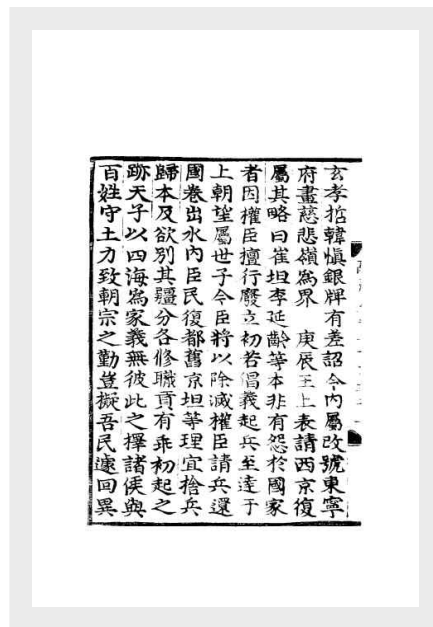 玄孝哲韓愼銀牌有差詔令内屬改號東寧
府畫慈悲嶺爲界 庚辰王上表請西京復
屬其略曰崔坦李延齡等本非有怨於國家
者因權臣擅行廢立初若倡義起兵至達于
上朝望屬世子令臣將以除滅權臣請兵還
國巻出水内臣民復都舊京坦等理宜捨兵
歸本及欲別其疆分各修職貢有乖初起之
跡天子以四海爲家義無彼此之擇諸侯與
百姓守土力致朝宗之勤豈擬吾民遽回異